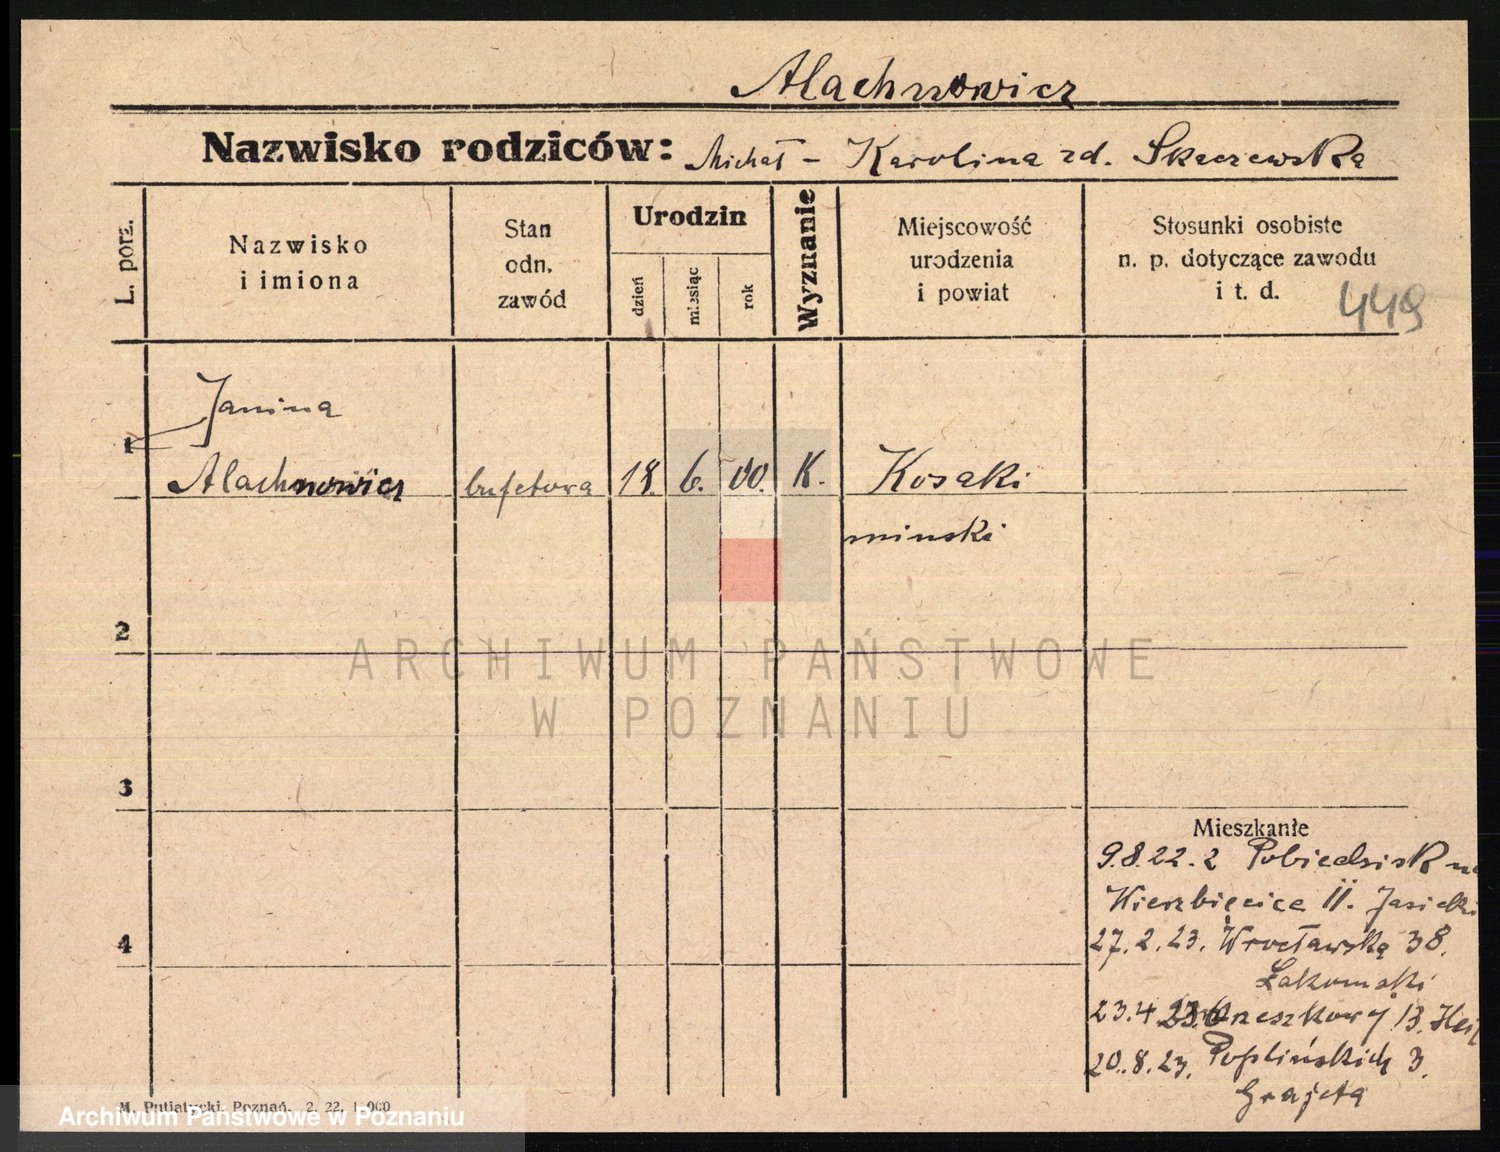 Alachnowicz
Nazwisko rodziców: Michał - Karolina zd. Skaczewska
L. porz.
Nazwisko i imiona
Stan odn. zawód
Urodzin
dzień
miesiąc
rok
Wyznanie
Miejscowość urodzenia i powiat
Stosunki osobiste n. p. dotyczące zawodu i t. d.
449
Janina
1
Alachnowicz bufetowa 18. 6. 00. K. Kosaki
minski
2
ARCHIWUM PAŃSTWOWE
W POZNANIU
3
Mieszkanie
9.8.22. z Pobiedzisk na
Wierzbięcice 11. Jasielski
4
27.2.23. Wrocławska 38.
Łakomski
23.4 23. Orzeszkowej 13.
20.8.23. Poplińskich 3.
Grajeta
M. Putiatycki, Poznań. 2. 22. 1.000
Archiwum Państwowe w Poznaniu